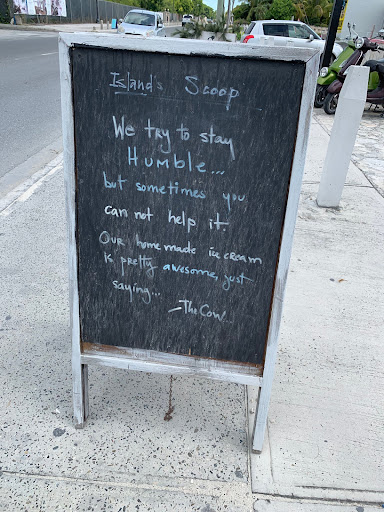 Island's Scoop
We try to stay
Humble...
but sometimes you
can not help it
Our home made ice cream
is pretty awesome, just
saying...
- The Cow